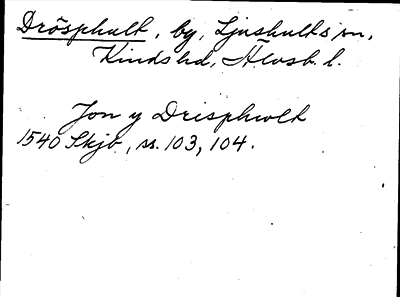 Drösphult, by, Ljushults sn,
Kinds hd, Älvsb. l.
Jon y Drisphwlt
1540 Skjb, ss. 103, 104.